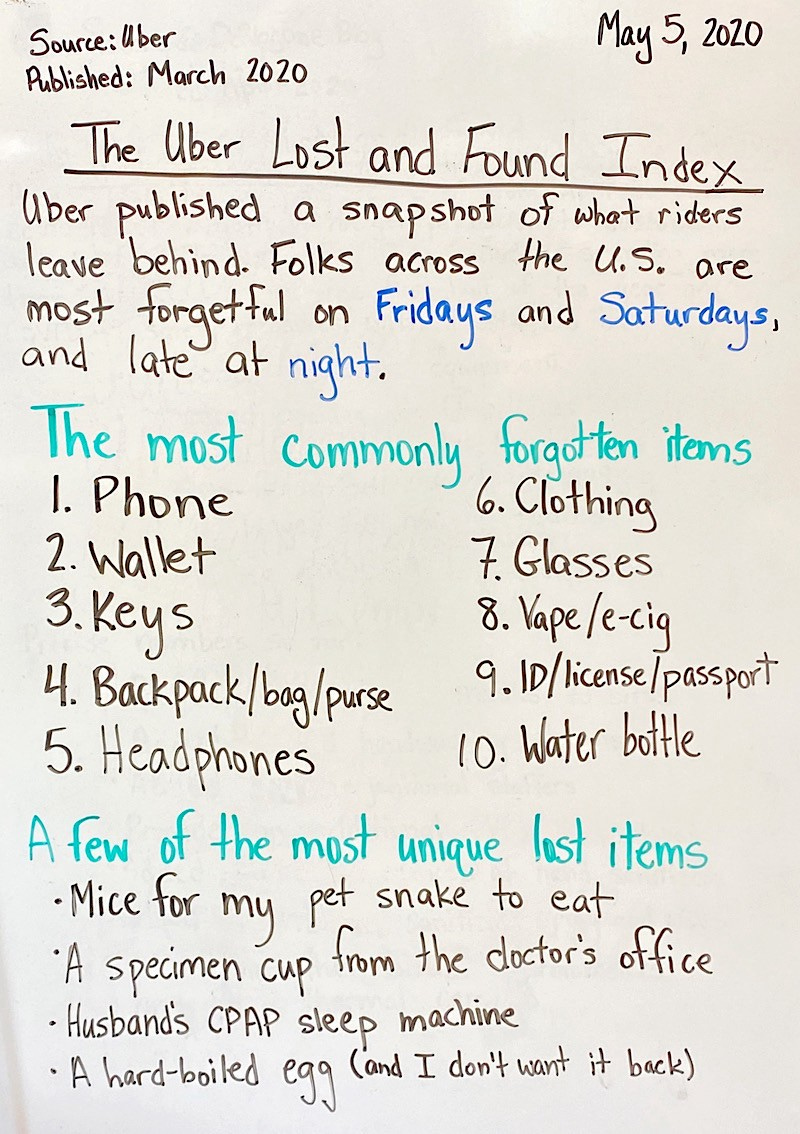 Source: Uber
Published: March 2020
May 5, 2020
The Uber Lost and Found Index
Uber published a snapshot of what riders
leave behind. Folks across the U.S. are
most forgetful on Fridays and Saturdays,
and late at night.
The most commonly forgotten items
1. Phone
2. Wallet
3. Keys
4. Backpack/bag/purse
5. Headphones
6. Clothing
7. Glasses
8. Vape/e-cig
9. ID/license/passport
10. Water bottle
A few of the most unique lost items
· Mice for my pet snake to eat
· A specimen cup from the doctor's office
· Husband's CPAP sleep machine
· A hard-boiled egg (and I don't want it back)